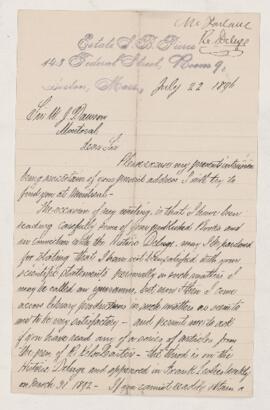 Mc Farlane
Re Deluge
Estate S. B. Pierce
143 Federal Street, Room 9,
Boston, Mass., July 22 1896
Sir W. J. Dawson
Montreal
Dear Sir
Please excuse my present intrusion
being uncertain of your present address I will try to
find you at Montreal -
The occasion of my writing is that I have been
reading carefully some of your published Works and
in connection with the Historic Deluge may I be pardoned
for stating that I have not been satisfied with your
scientific statements personally in such matters I
may be called an ignoramus, but now & then I come
across literary productions in such matters as seem to
me to be very satisfactory - and permit me to ask
if you have read any of a series of articles from
the pen of R. - the third is on the
Historic Deluge and appeared in Frank Leslies weekly
on March 31 1892 - If you cannot readily obtain a